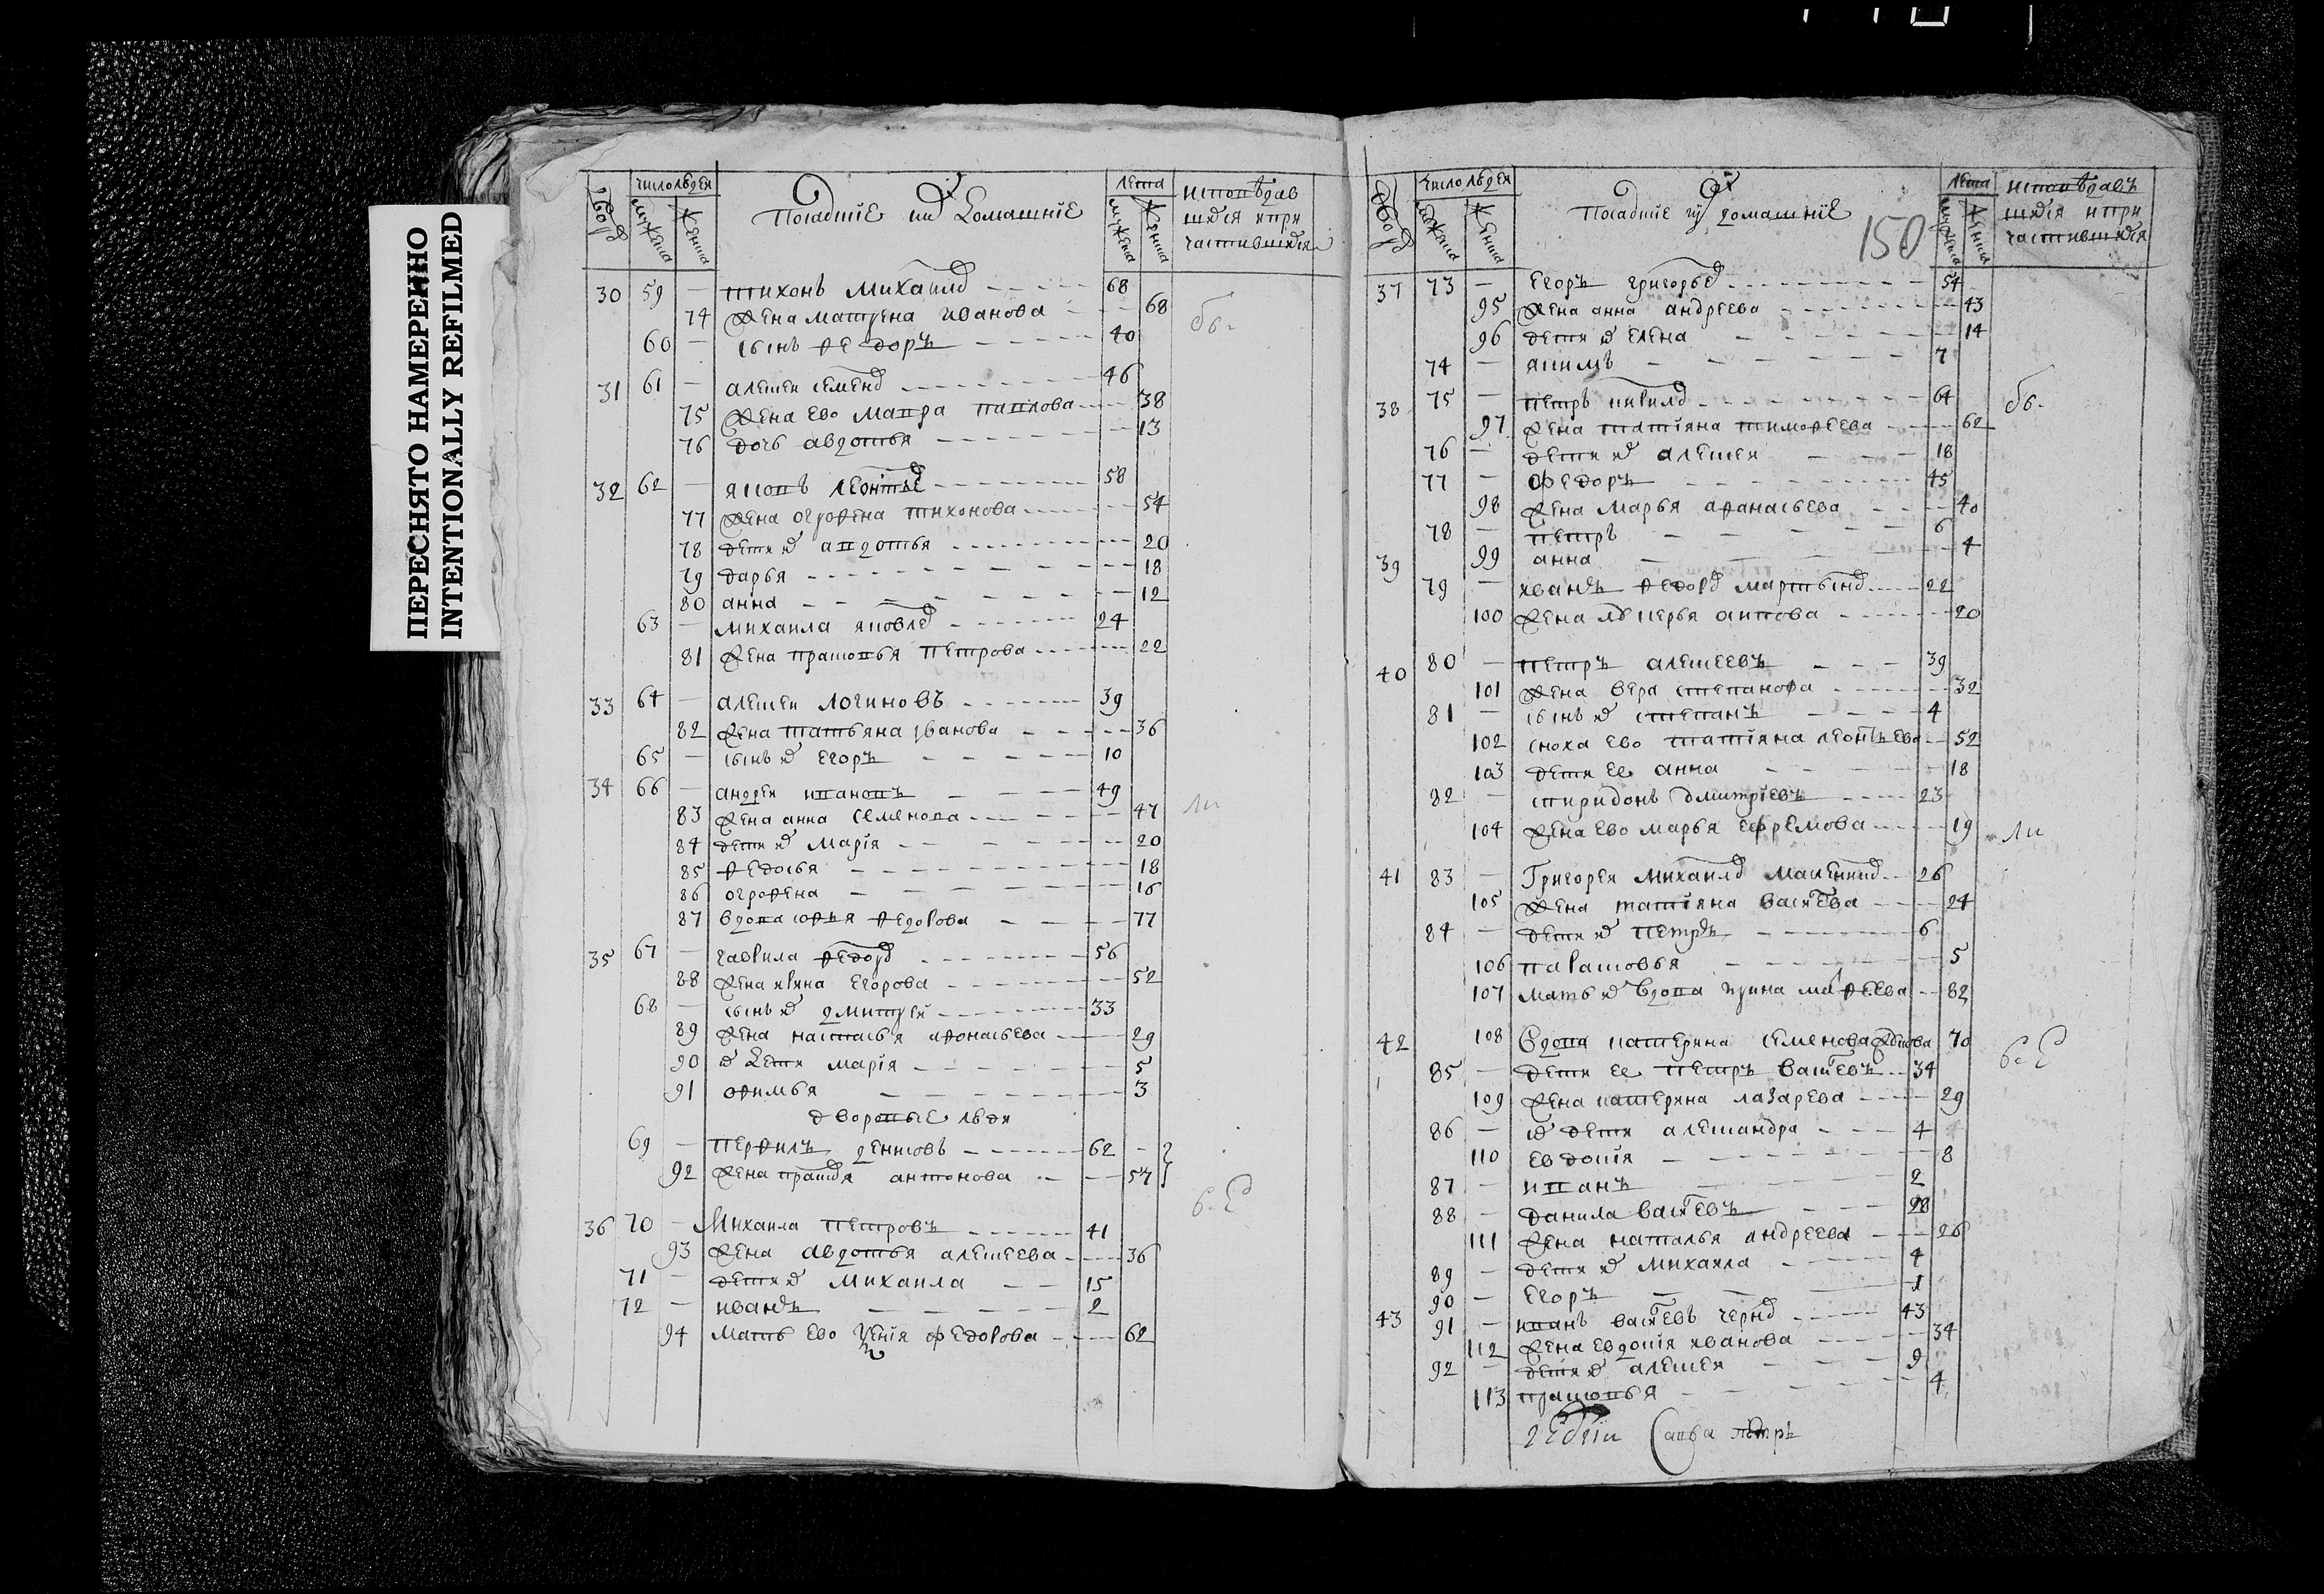 ПЕРЕСНЯТО НАМЕРЕННО
INTENTIONALLY REFILMED
число людей Посадские их домашние лета исповедав
двор мужска женска мужска женска шияся и при
частившияся
30 59 — тихонъ михаилов 68
74 жена матрена иванова 68
60 — сынъ федоръ 40
31 61 — алексеи семенов 46
75 жена ево мавра павлова 38
76 дочь авдотья 13
32 62 — яковъ леонтьев 58
77 жена огрофена тихонова 54
78 дети ев авдотья 20
79 дарья 18
80 анна 12
63 — михаила яковлев 24
81 жена прасковья петрова 22
33 64 — алексеи логиновъ 39
82 жена татьяна иванова 36
65 — сынъ ев егоръ 10
34 66 — андреи ивановъ 49
83 жена анна семенова 47
84 дети ев марїя 20
85 федосья 18
86 огрофена 16
87 вдова софья федорова 77
35 67 — гаврила федоров 56
88 жена ирина егорова 52
68 — сынъ ев дмитреи 33
89 жена настасья афонасьева 29
90 ев дети марїя 5
91 офимья 3
дворовые люди
69 — перфилъ денисовъ 62
92 жена прасков антонова 57
36 70 — Михаила петровъ 41
93 жена авдотья алексеева 36
71 — дети ев михаила 15
72 — иванъ 2
94 мать ево федорова 62
число людей Посадские их домашние лета исповедавъ
двор мужска женска мужска женска шияся и при
частившияся
150
37 73 — егоръ григорьев 54
95 жена анна андреева 43
96 дети ев елена 14
74 — якимъ 7
38 75 — петръ кирилов 64
97 жена татїяна тимофеева 62
76 — дети ев алексеи 18
77 — федоръ 45
98 жена марья афанасьева 40
78 — петръ 6
39 99 анна 4
79 — иванъ федоров мартынов 22
100 жена лукерья антова 20
40 80 — петръ алексеевъ 39
101 жена вера степанова 32
81 — сынъ ев степанъ 4
102 сноха ево татїяна леонтьева 52
103 дети ее анна 18
82 — спиридонъ дмитрїевъ 23
104 жена ево марья ефремова 19
41 83 — Григореи михаилов 26
105 жена татїяна васильева 24
84 — дети ев петръ 6
106 парасковья 5
107 мать ев вдова ирина мафеева 82
42 108 вдова катерина семенова 70
85 — дети ее петръ васильевъ 34
109 жена катерина лазарева 29
86 — ев дети александра 4
110 евдокїя 8
87 — иванъ 2
88 — данила васильевъ 28
111 жена наталья андреева 26
89 — дети ев михаила 4
90 — егоръ 1
43 91 — иванъ васильевъ чернов 43
112 жена евдокїя иванова 34
92 — дети ев алексеи 9
113 прасковья 4